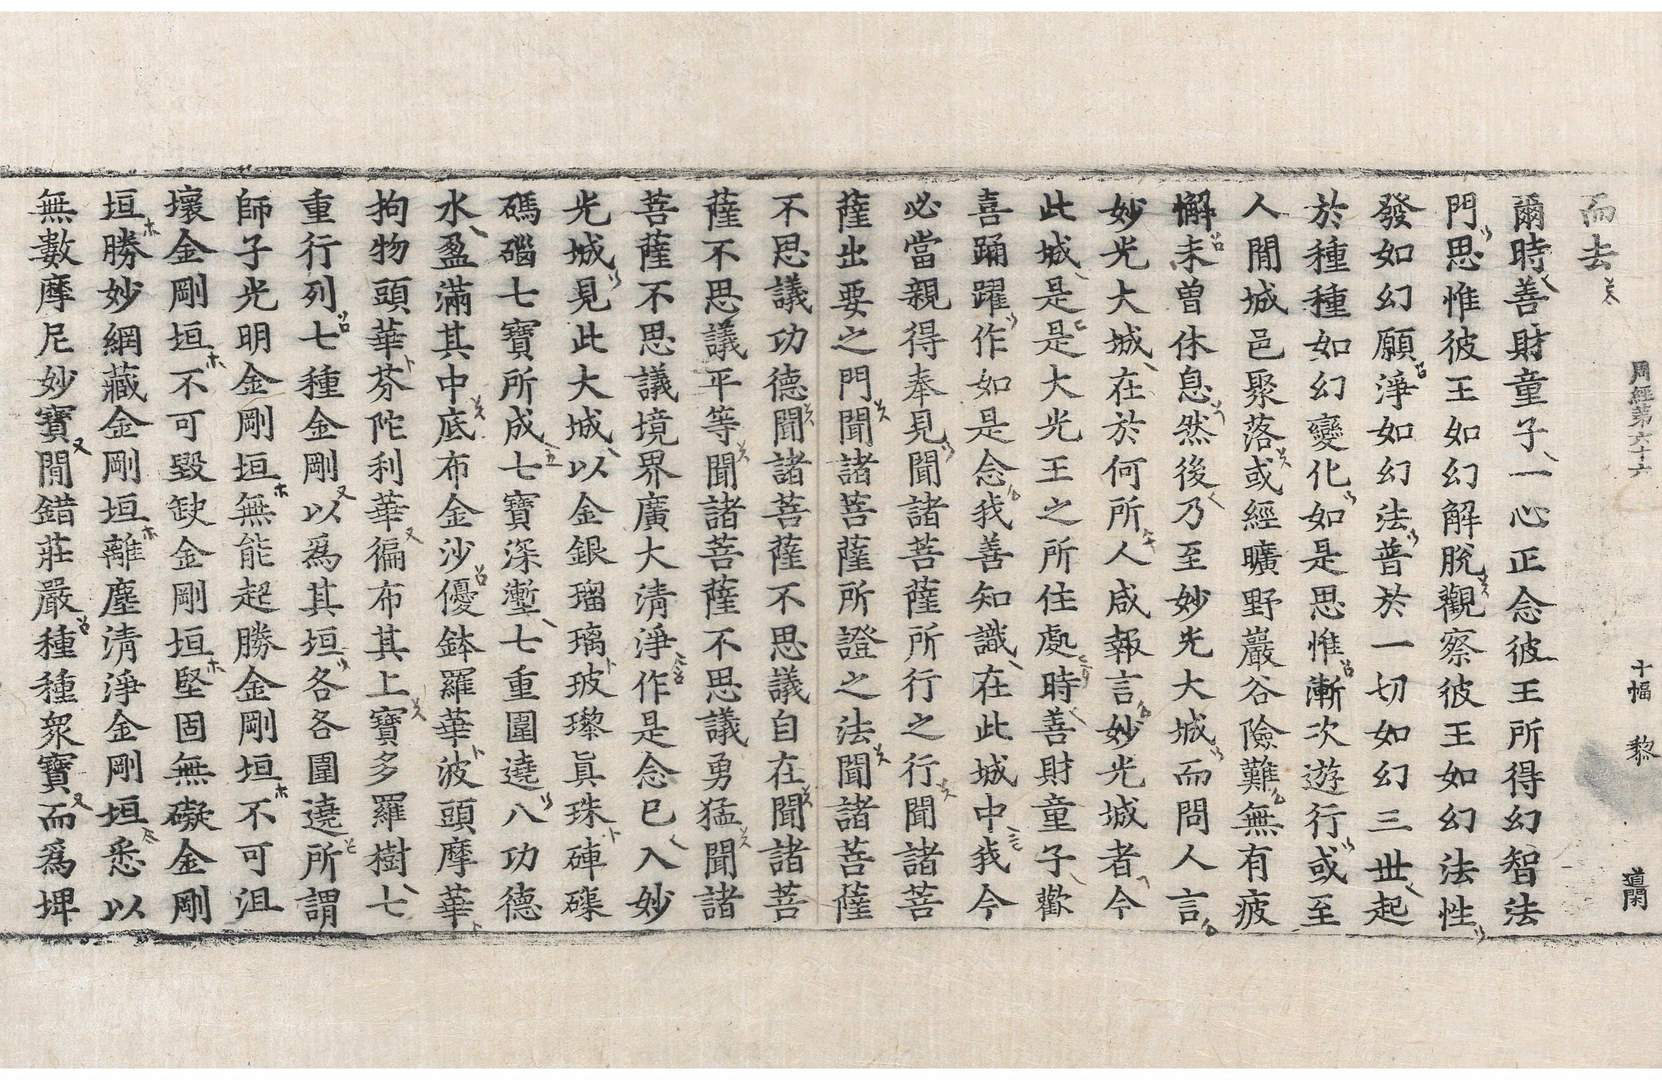 周經第六十六 十幅 黎 道闌
而去
爾時善財童子一心正念彼王所得幻智法
門思惟彼王如幻解脫觀察彼王如幻法性
發如幻願淨如幻法普於一切如幻三世起
於種種如幻變化如是思惟漸次遊行或至
人閒城邑聚落或經曠野巖谷險難無有疲
懈未曾休息然後乃至妙光大城而問人言
妙光大城在於何所人咸報言妙光城者今
此城是是大光王之所住處時善財童子歡
喜踊躍作如是念我善知識在此城中我今
必當親得奉見聞諸菩薩所行之行聞諸菩
薩出要之門聞諸菩薩所證之法聞諸菩薩
不思議功德聞諸菩薩不思議自在聞諸菩
薩不思議平等聞諸菩薩不思議勇猛聞諸
菩薩不思議境界廣大清淨作是念已入妙
光城見此大城以金銀瑠璃玻瓈眞珠硨磲
碼碯七寶所成七寶深塹七重圍遶八功德
水盈滿其中底布金沙優鉢羅華波頭摩華
拘物頭華芬陀利華徧布其上寶多羅樹七
重行列七種金剛以爲其垣各各圍遶所謂
師子光明金剛垣無能起勝金剛垣不可沮
壞金剛垣不可毀缺金剛垣堅固無礙金剛
垣勝妙網藏金剛垣離塵淸淨金剛垣悉以
無數摩尼妙寶閒錯莊嚴種種衆寶而爲埤